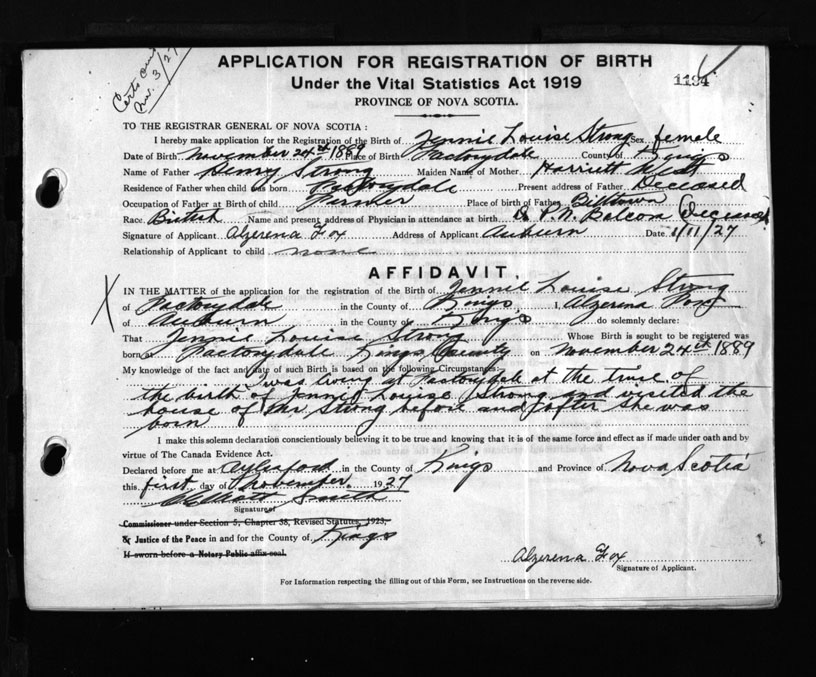 Certs
Nov. 3/27
APPLICATION FOR REGISTRATION OF BIRTH
Under the Vital Statistics Act 1919
1194
PROVINCE OF NOVA SCOTIA.
TO THE REGISTRAR GENERAL OF NOVA SCOTIA:
I hereby make application for the Registration of the Birth of Jennie Louise Strong Sex female
Date of Birth November 24th 1889 Place of Birth Factorydale County of Kings
Name of Father Henry Strong Maiden Name of Mother Harriett
Residence of Father when child was born Factorydale Present address of Father Deceased
Occupation of Father at Birth of child Farmer Place of birth of Father Billtown
Race British Name and present address of Physician in attendance at birth Dr P. N. Balcom (Deceased)
Signature of Applicant Alzerena Fox Address of Applicant Auburn Date 1/11/27
Relationship of Applicant to child none
AFFIDAVIT.
IN THE MATTER of the application for the registration of the Birth of Jennie Louise Strong
of Factorydale in the County of Kings I, Alzerena Fox
of Auburn in the County of Kings do solemnly declare:
That Jennie Louise Strong Whose Birth is sought to be registered was
born at Factorydale Kings County on November 24th 1889
My knowledge of the fact and date of such Birth is based on the following Circumstances:
I was living at Factorydale at the time of
the birth of Jennie Louise Strong and visited the
house of Mr Strong before and after she was
born
I make this solemn declaration conscientiously believing it to be true and knowing that it is of the same force and effect as if made under oath and by
virtue of The Canada Evidence Act.
Declared before me at Aylesford in the County of Kings and Province of Nova Scotia
this first day of November 1927
Smith
Signature of
Commissioner under Section 5, Chapter 38, Revised Statutes, 1923,
& Justice of the Peace in and for the County of Kings
If sworn before a Notary Public affix seal.
Alzerena Fox
Signature of Applicant.
For Information respecting the filling out of this Form, see Instructions on the reverse side.